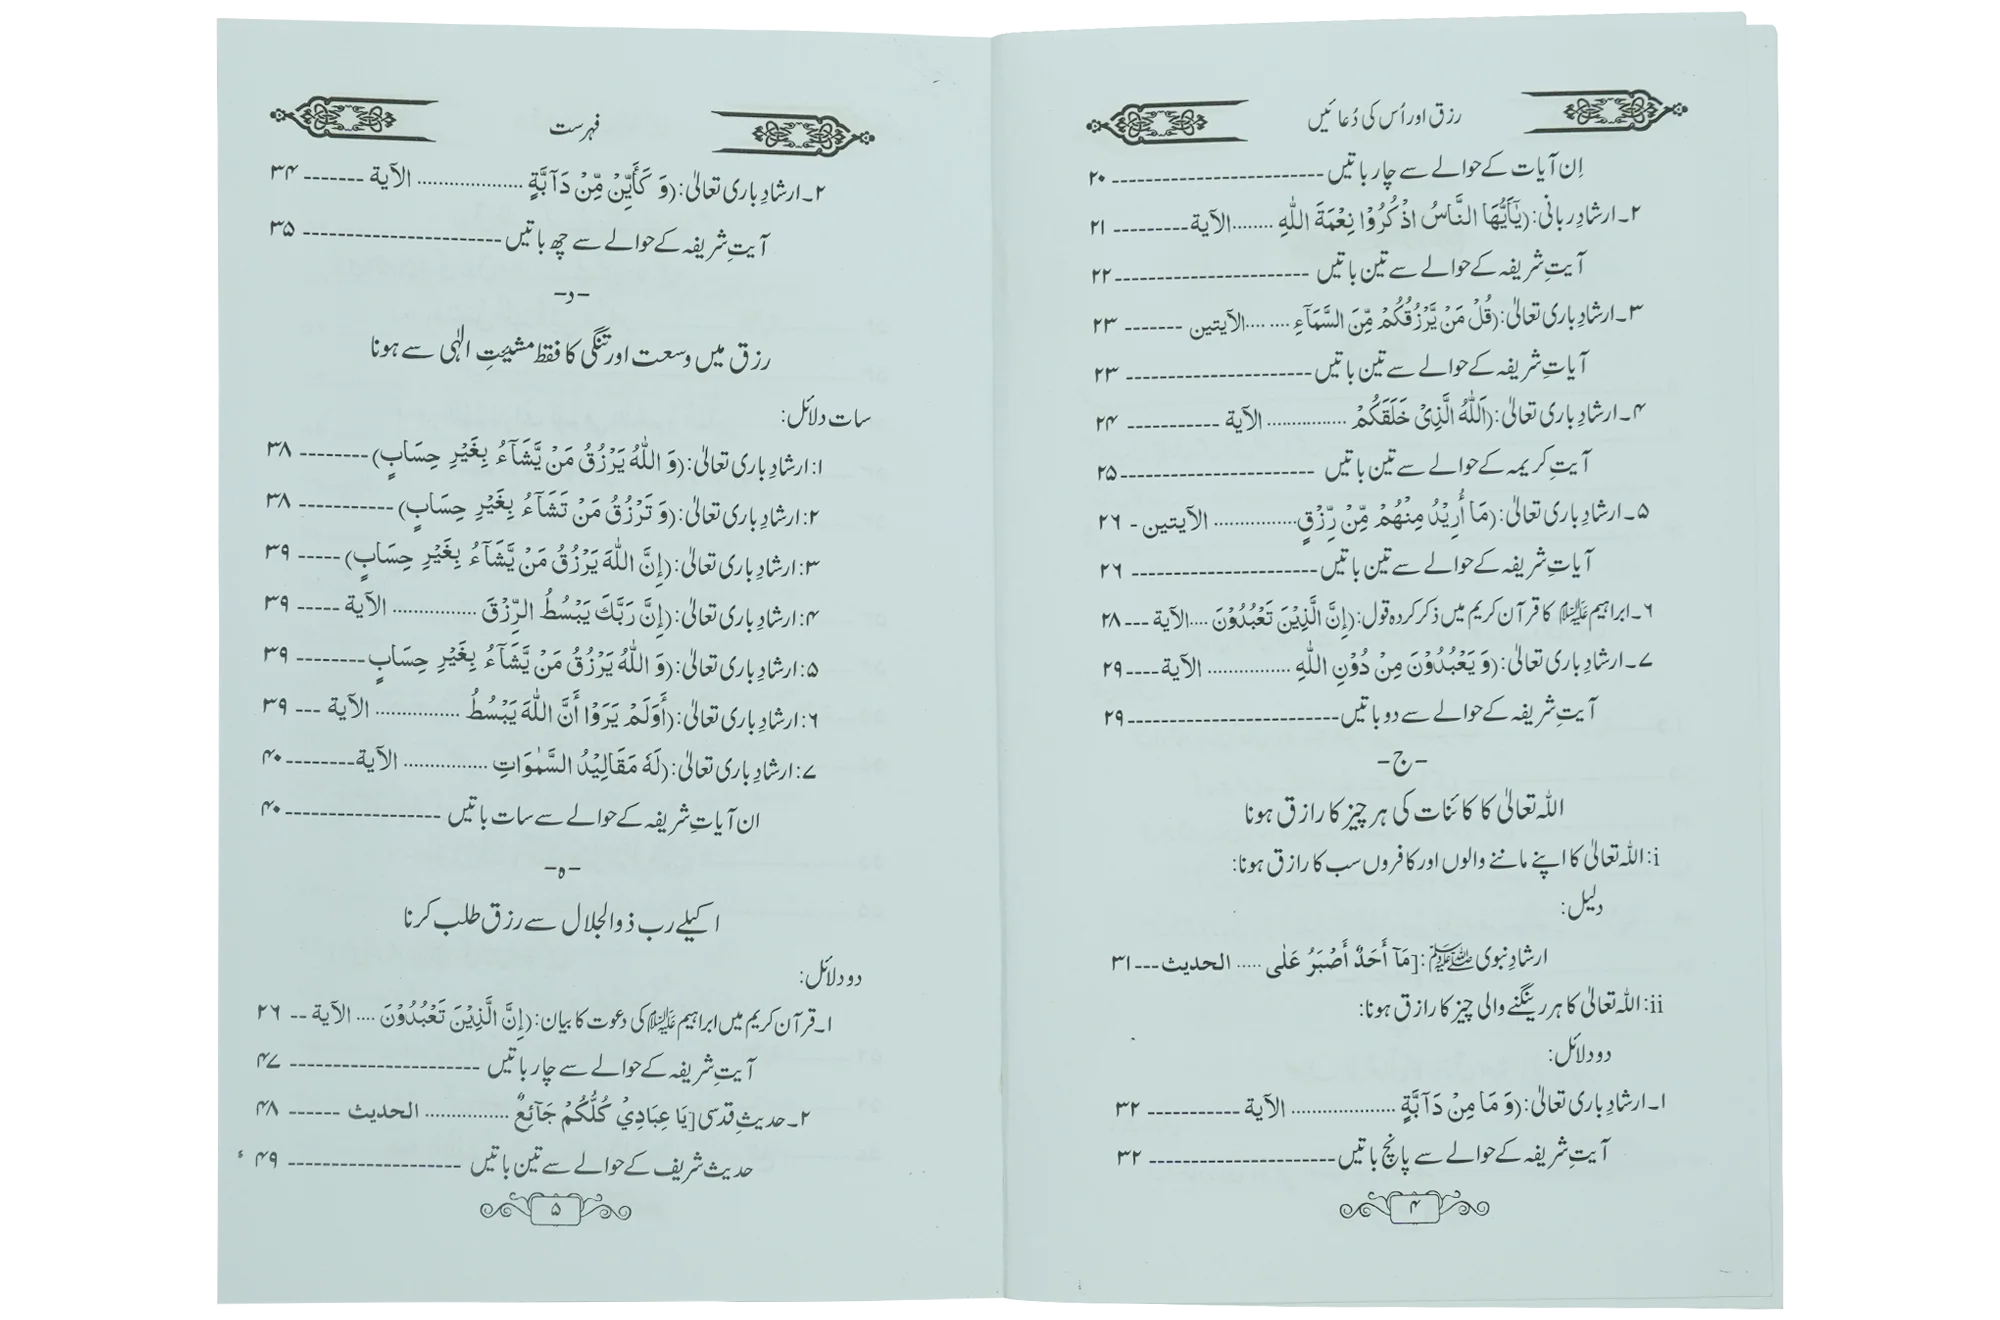 رزق اور اُس کی دُعائیں
اِن آیات کے حوالے سے چار باتیں ------------------------ ۲۰
۲۔ ارشادِ ربانی: (يٰۤاَيُّهَا النَّاسُ اذْكُرُوْا نِعْمَةَ اللّٰهِ ........ الآية --------- ۲۱
آیتِ شریفہ کے حوالے سے تین باتیں ---------------------- ۲۲
۳۔ ارشادِ باری تعالیٰ: (قُلْ مَنْ يَّرْزُقُكُمْ مِّنَ السَّمَآءِ ........ الآيتين ------- ۲۳
آیاتِ شریفہ کے حوالے سے تین باتیں --------------------- ۲۳
۴۔ ارشادِ باری تعالیٰ: (اَللّٰهُ الَّذِيْ خَلَقَكُمْ ................ الآية ----------- ۲۴
آیتِ کریمہ کے حوالے سے تین باتیں ---------------------- ۲۵
۵۔ ارشادِ باری تعالیٰ: (مَا أُرِيْدُ مِنْهُمْ مِّنْ رِّزْقٍ ................ الآيتين - ۲۶
آیاتِ شریفہ کے حوالے سے تین باتیں --------------------- ۲۶
۶۔ ابراہیم علیہ السلام کا قرآن کریم میں ذکر کردہ قول: (إِنَّ الَّذِيْنَ تَعْبُدُوْنَ .... الآية --- ۲۸
۷۔ ارشادِ باری تعالیٰ: (وَ يَعْبُدُوْنَ مِنْ دُوْنِ اللّٰهِ ................ الآية ---- ۲۹
آیتِ شریفہ کے حوالے سے دو باتیں ------------------------ ۲۹
-ج-
اللہ تعالیٰ کا کائنات کی ہر چیز کا رازق ہونا
i: اللہ تعالیٰ کا اپنے ماننے والوں اور کافروں سب کا رازق ہونا:
دلیل:
ارشادِ نبوی ﷺ: [مَآ أَحَدٌ أَصْبَرُ عَلٰى ..... الحديث --- ۳۱
ii: اللہ تعالیٰ کا ہر رینگنے والی چیز کا رازق ہونا:
دو دلائل:
۱۔ ارشادِ باری تعالیٰ: (وَ مَا مِنْ دَآبَّةٍ .................... الآية ----------- ۳۲
آیتِ شریفہ کے حوالے سے پانچ باتیں --------------------- ۳۲
۴
فہرست
۲۔ ارشادِ باری تعالیٰ: (وَ كَأَيِّنْ مِّنْ دَآبَّةٍ .................... الآية ------- ۳۴
آیتِ شریفہ کے حوالے سے چھ باتیں ---------------------- ۳۵
-د-
رزق میں وسعت اور تنگی کا فقط مشیّتِ الٰہی سے ہونا
سات دلائل:
۱: ارشادِ باری تعالیٰ: (وَ اللّٰهُ يَرْزُقُ مَنْ يَّشَآءُ بِغَيْرِ حِسَابٍ) -------- ۳۸
۲: ارشادِ باری تعالیٰ: (وَ تَرْزُقُ مَنْ تَشَآءُ بِغَيْرِ حِسَابٍ) ----------- ۳۸
۳: ارشادِ باری تعالیٰ: (إِنَّ اللّٰهَ يَرْزُقُ مَنْ يَّشَآءُ بِغَيْرِ حِسَابٍ) ----- ۳۹
۴: ارشادِ باری تعالیٰ: (إِنَّ رَبَّكَ يَبْسُطُ الرِّزْقَ ................ الآية ----- ۳۹
۵: ارشادِ باری تعالیٰ: (وَ اللّٰهُ يَرْزُقُ مَنْ يَّشَآءُ بِغَيْرِ حِسَابٍ -------- ۳۹
۶: ارشادِ باری تعالیٰ: (أَوَلَمْ يَرَوْا أَنَّ اللّٰهَ يَبْسُطُ ................ الآية --- ۳۹
۷: ارشادِ باری تعالیٰ: (لَهٗ مَقَالِيْدُ السَّمٰوَاتِ ................ الآية -------- ۴۰
ان آیاتِ شریفہ کے حوالے سے سات باتیں ------------------ ۴۰
-ہ-
اکیلے رب ذوالجلال سے رزق طلب کرنا
دو دلائل:
۱۔ قرآن کریم میں ابراہیم علیہ السلام کی دعوت کا بیان: (إِنَّ الَّذِيْنَ تَعْبُدُوْنَ .... الآية -- ۲۶
آیتِ شریفہ کے حوالے سے چار باتیں ---------------------- ۴۷
۲۔ حدیثِ قدسی [يَا عِبَادِيْ كُلُّكُمْ جَآئِعٌ ................ الحديث ------ ۴۸
حدیث شریف کے حوالے سے تین باتیں -------------------- ۴۹
۵